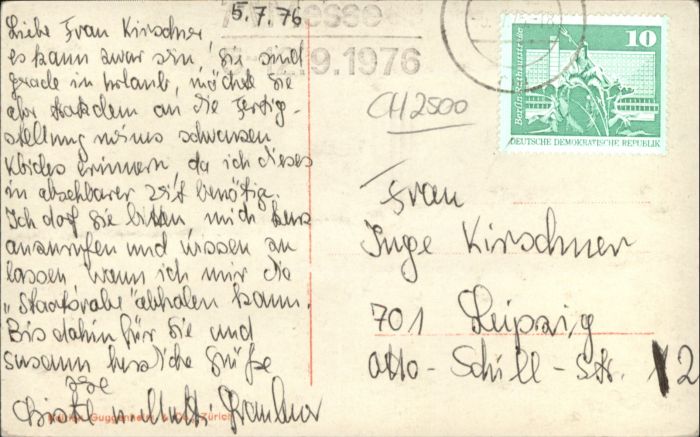 5.7.76
Liebe Frau Kirschner
es kann zwar sein, Sie sind
grade in Urlaub, möchte Sie
aber trotzdem an die Fertig-
stellung meines schwarzen
Kleides erinnern, da ich dieses
in absehbarer Zeit benötige.
Ich darf Sie bitten, mich kurz
anzurufen und wissen zu
lassen wann ich mir die
"Staatsrobe" abholen kann.
Bis dahin für Sie und
Susann herzliche Grüße
Messe
12.9.1976
CH2500
10
DEUTSCHE DEMOKRATISCHE REPUBLIK
Frau
Inge Kirschner
701 Leipzig
Otto-Schill-Str. 12
Guggenheim & Co., Zürich